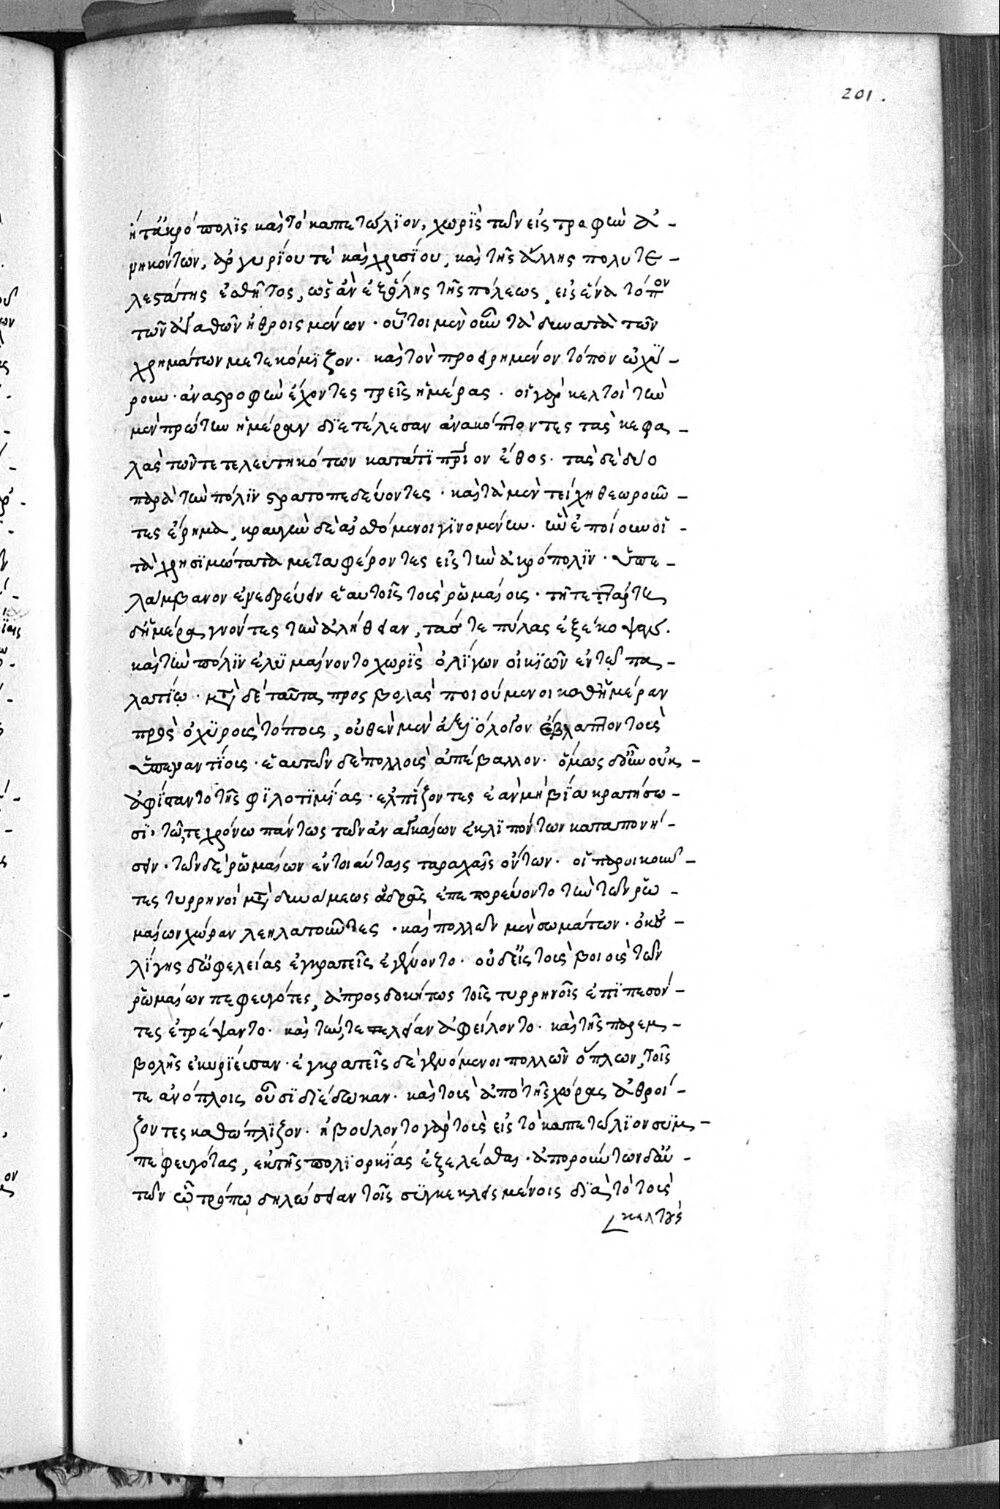 201.
ἥ τε ἀκρόπολις καὶ τὸ καπετώλϊον, χωρὶς τῶν εἰς τραφὴν ἀ-
νηκόντων, ἀργυρίου τε καὶ χρυσίου, καὶ τῆς ἄλλης πολυτε-
λεστάτης ἐσθῆτος, ὡς ἂν ἐξ ὅλης τῆς πόλεως, εἰς ἕνα τόπον
τῶν ἀγαθῶν ἠθροισμένων· οὗτοι μὲν οὖν τὰ δυνατὰ τῶν
χρημάτων μετεκόμϊζον· καὶ τὸν προειρημένον τόπον ὠχύ-
ρουν· ἀναστροφὴν ἔχοντες τρεῖς ἡμέρας· οἱ γὰρ κελτοὶ τὴν
μὲν πρώτην ἡμέραν δϊετέλεσαν ἀνακόπτοντες τὰς κεφα-
λὰς τῶν τετελευτηκότων κατά τϊ πάτριον ἔθος· τὰς δὲ δύο
παρὰ τὴν πόλϊν στρατοπεδεύοντες· καὶ τὰ μὲν τείχη θεωροῦν-
τες ἔρημα, κραυγὴν δὲ αἰσθόμενοι γϊνομένην· ἣν ἐποίουν οἱ
τὰ χρησϊμώτατα μεταφέροντες εἰς τὴν ἀκρόπολϊν· ὑπε-
λάμβανον ἐνεδρεύειν ἑαυτοῖς τοὺς ῥωμαίους· τῇ τετάρτῃ
δ' ἡμέρᾳ γνόντες τὴν ἀλήθειαν, τάς τε πύλας ἐξέκοψαν.
καὶ τὴν πόλϊν ἐλυμαίνοντο χωρὶς ὀλίγων οἰκϊῶν ἐν τῷ πα-
λατίῳ· μετὰ δὲ ταῦτα προσβολὰς ποιούμενοι καθ' ἡμέραν
πρὸς ὀχυροὺς τόπους, οὐθὲν μὲν ἀξϊόλογον ἔβλαπτον τοὺς
ὑπεναντίους· ἑαυτῶν δὲ πολλοὺς ἀπέβαλλον· ὅμως δ' οὖν οὐκ-
ἀφίσταντο τῆς φϊλοτϊμίας· ἐλπίζοντες ἐὰν μὴ βίᾳ κρατήσω-
σϊ· τῷ γε χρόνῳ πάντως τῶν ἀναγκαίων ἐκλϊπόντων καταπονή-
σειν· τῶν δὲ ῥωμαίων ἐν τοιαύταις ταραχαῖς ὄντων· οἱ παροικοῦν-
τες τυρρηνοὶ μετὰ δυνάμεως ἁδρᾶς ἐπεπορεύοντο τὴν τῶν ῥω-
μαίων χώραν λεηλατοῦντες· καὶ πολλῶν μὲν σωμάτων· οὐκ ὀ-
λίγης δ' ὠφελείας ἐγκρατεῖς ἐγένοντο· οἱ δ' εἰς τοὺς βοιοὺς τῶν
ῥωμαίων πεφευγότες, ἀπροσδοκήτως τοῖς τυρρηνοῖς ἐπϊπεσόν-
τες ἐτρέψαντο· καὶ τήν τε λείαν ἀφείλοντο· καὶ τῆς παρεμ-
βολῆς ἐκυρίευσαν· ἐγκρατεῖς δὲ γενόμενοι πολλῶν ὅπλων, τοῖς
τε ἀνόπλοις οὖσϊ δϊέδωκαν· καὶ τοὺς ἀπὸ τῆς χώρας ἀθροί-
ζοντες καθώπλϊζον· ἠβούλοντο γὰρ τοὺς εἰς τὸ καπετώλϊον συμ-
πεφευγότας, ἐκ τῆς πολϊορκίας ἐξελέσθαι· ἀπορούντων δ' αὐ-
τῶν ᾧ τρόπῳ δηλώσειαν τοῖς συγκεκλεισμένοις δϊὰ τὸ τοὺς
κελτοὺς